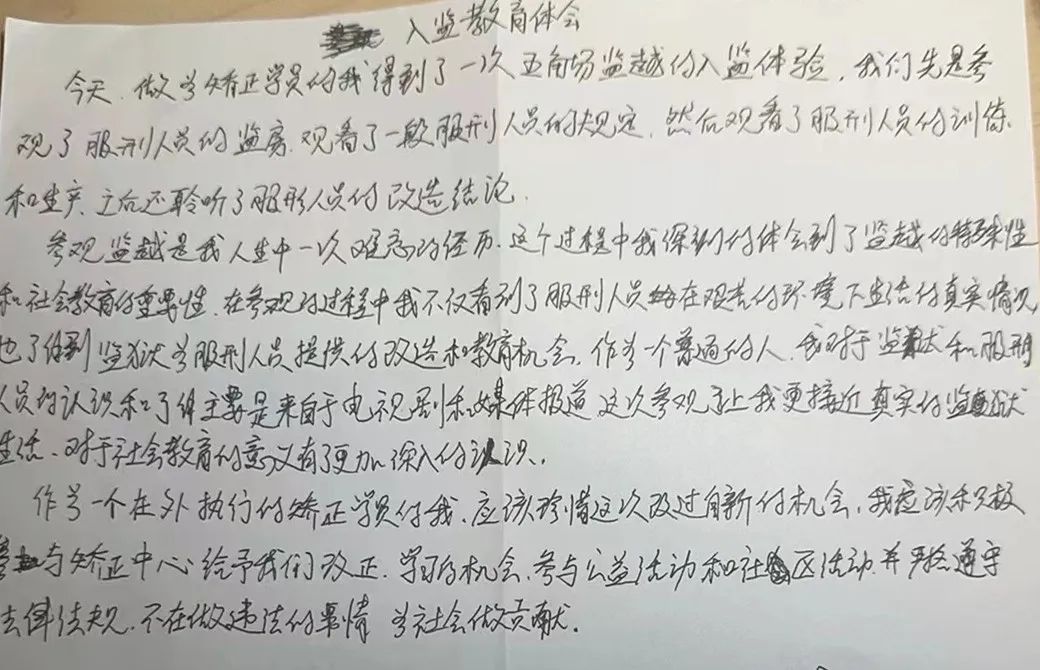 入监教育体会
今天、做为矫正学员的我得到了一次五角场监越的入监体验，我们先是参
观了服刑人员的监房、观看了一般服刑人员的规定、然后观看了服刑人员的训练
和生产、之后还聆听了服形人员的改造结论.
参观监越是我人生中一次难忘的经历、这个过程中我深刻的体会到了监越的特殊性
和社会教育的重要性、在参观的过程中我不仅看到了服刑人员在艰苦的环境下生活的真实情况
也了解到监狱为服刑人员提供的改造和教育机会、作为一个普通的人、我对于监狱和服刑
人员的认识和了解主要是来自于电视剧和媒体报道 这次参观让我更接近真实的监狱
生活、对于社会教育的意义有了更加深入的认识.
作为一个在外执行的矫正学员的我、应该珍惜这次改过自新的机会、我应该积极
参与矫正中心给予我们改正、学习的机会、参与公益活动和社区活动 并严格遵守
法律法规、不在做违法的事情 为社会做贡献.